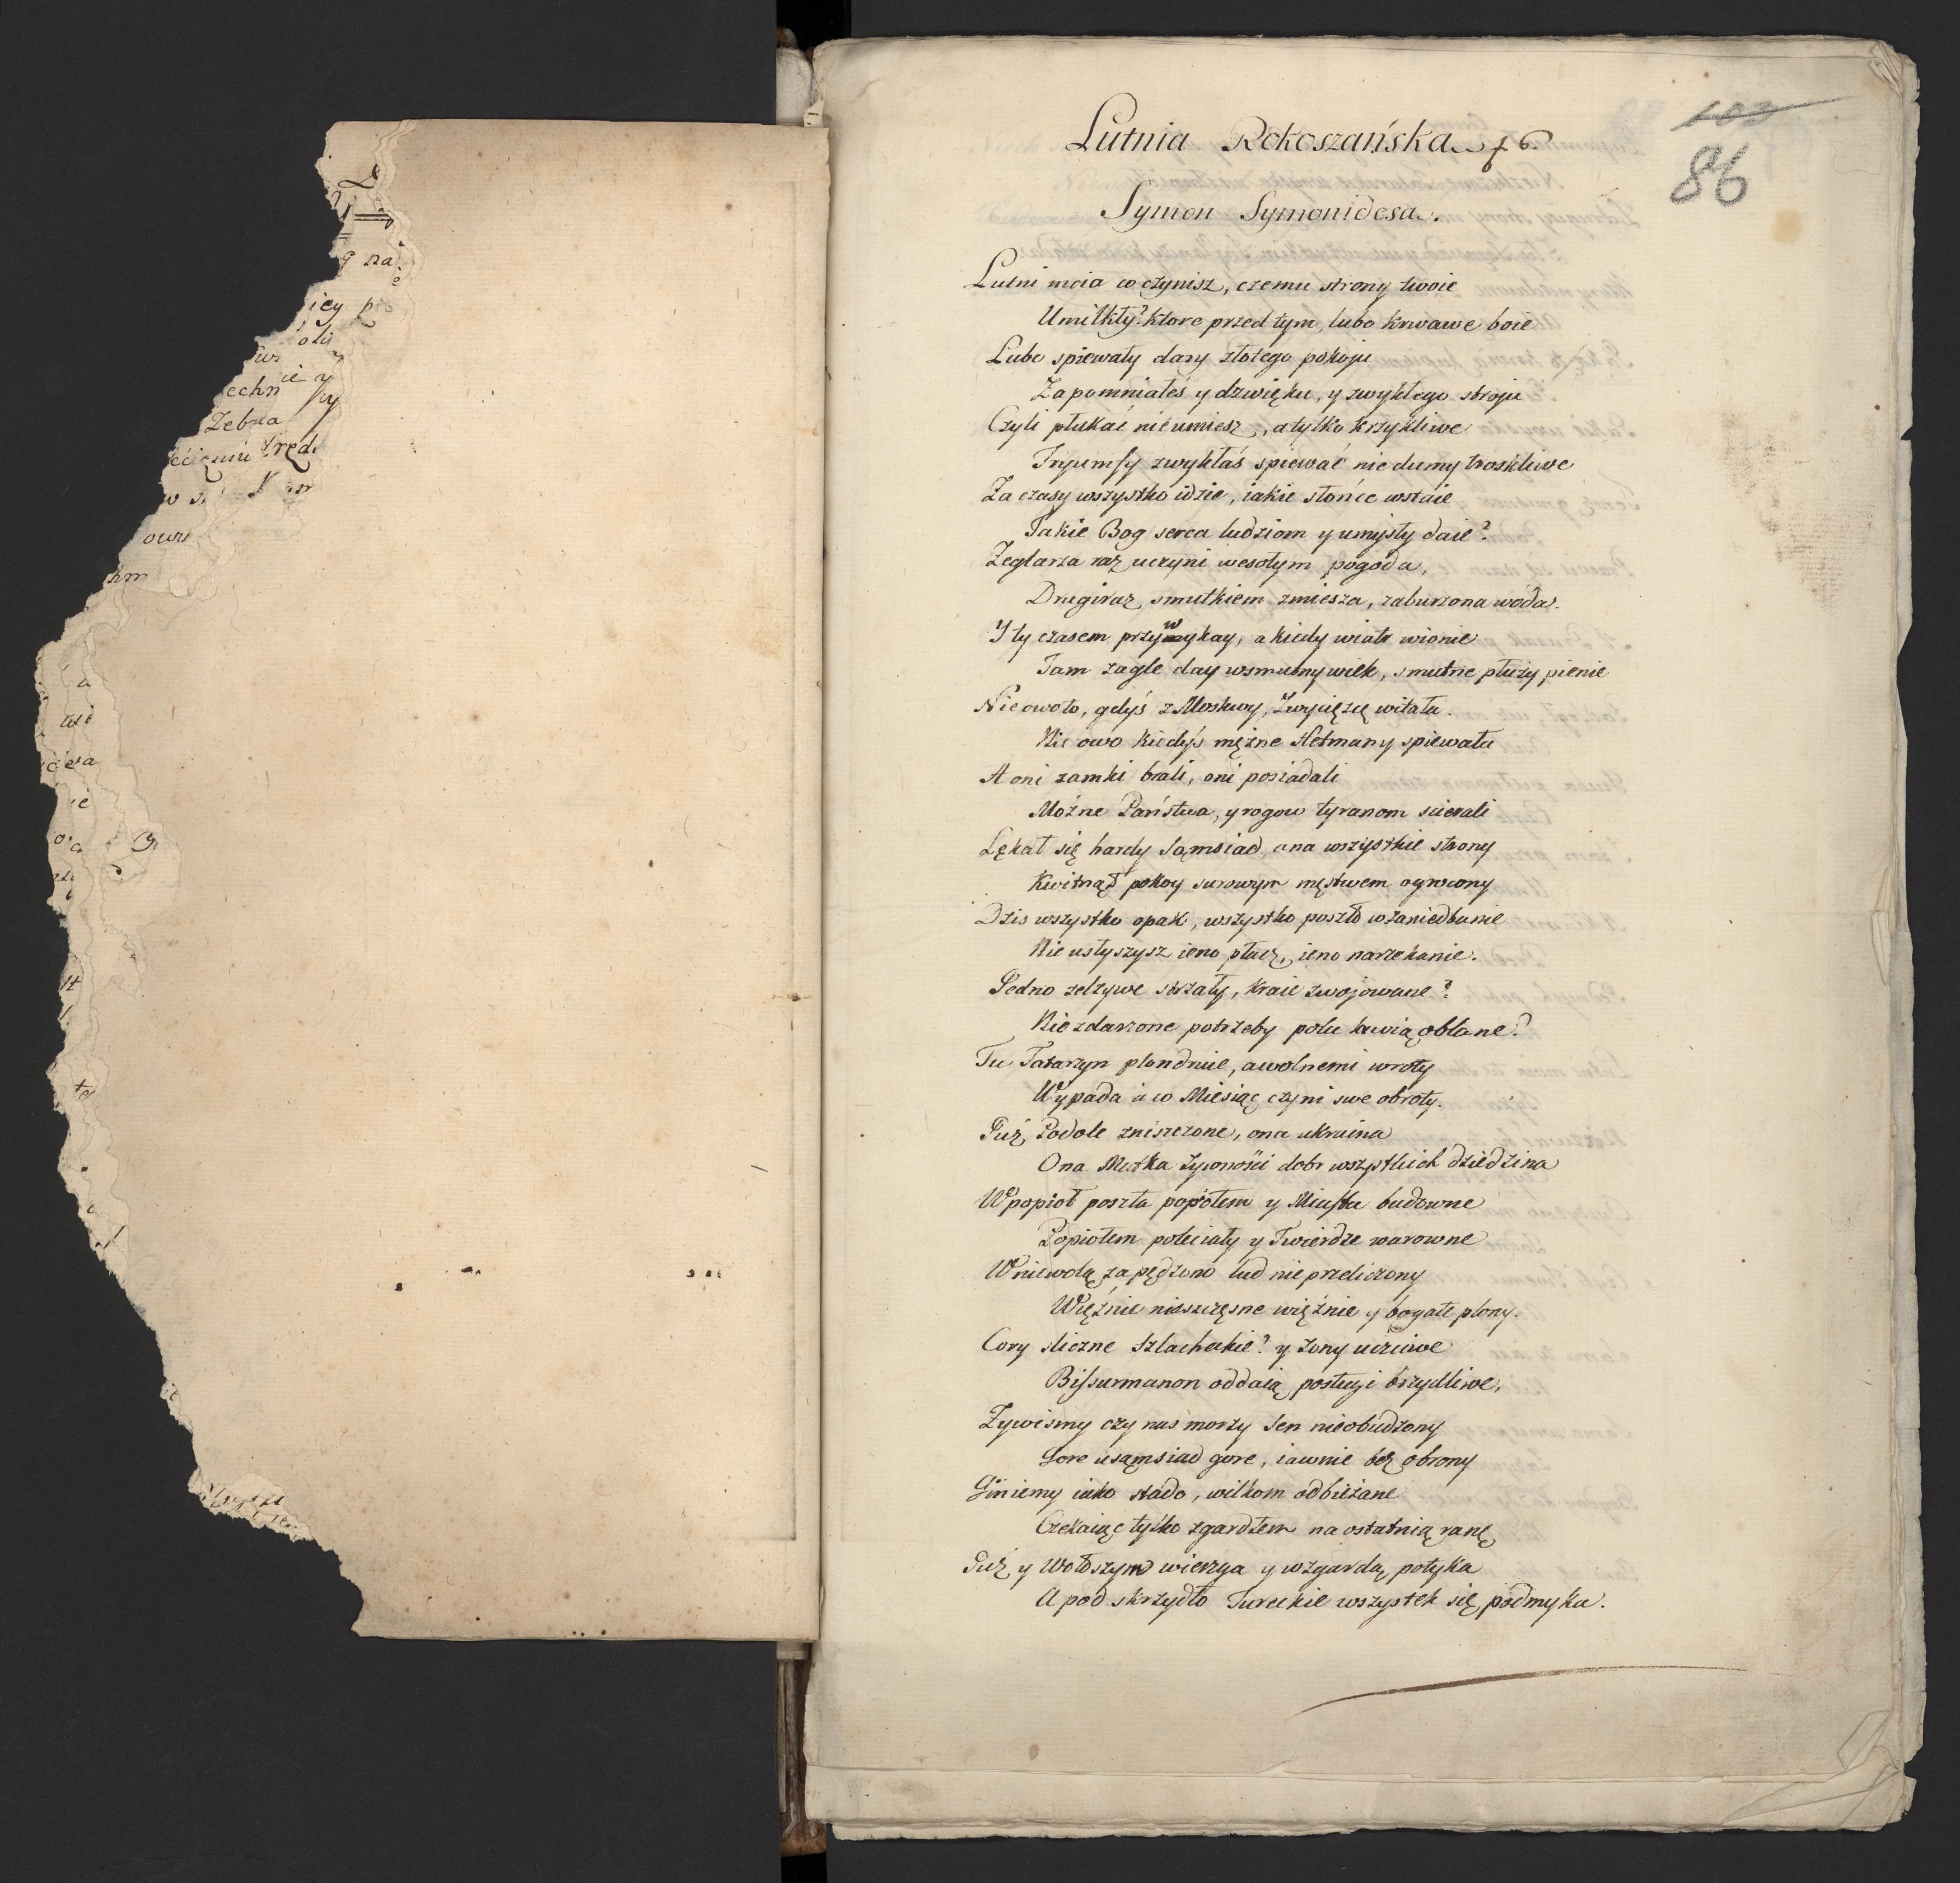 na
iey
echn
Zebra
ręd
owi
hm
te
103
86
Lutnia Rokoszańska f 6.
Symon Symonidesa.
Lutni moia co czynisz, czemu strony twoie
Umilkły? ktore przed tym, lubo krwawe boie
Lubo spiewały dary złotego pokoju
Zapomniałeś y dzwięku, y zwykłego stroju
Czyli płukać nieumiesz, a tylko krzykliwe
Tryumfy zwykłaś spiewać nie dumy troskliwe
Za czasy wszystko idzie, iakie słońce wstaie
Takie Bog serca ludziom y umysły daie?
Zeglarza raz uczyni wesołym pogoda,
Drugi raz smutkiem zmiesza, zaburzona woda.
Y ty czasem przywykay, a kiedy wiatr wionie
Tam zagle day w smutny wiek, smutne płuży pienie
Nie owoto, gdyś z Moskwy, Zwycięzcę witała.
Nie owo kiedyś mężne Hetmany spiewała
A oni zamki brali, oni posiadali
Możne Państwa, y rogow tyranom scierali
Lękał się hardy Sąmsiad, a na wszystkie strony
Kwitnął pokoy surowym męstwem ogrocony
Dzis wszystko opak, wszystko poszło w zaniedbanie
Nie usłyszysz ieno płacz, ieno narzekanie.
Jedno zelzywe strzały, kraie zwojowane?
Nie zdarzone potrzeby pola krwią oblane?
Tu Tatarzyn plondruie, a wolnemi wroty
Wypada i co Miesiąc czyni swe obroty.
Już Podole zniszczone, ona ukraina
Ona Matka żywności dobr wszystkich dziedzina
W popioł poszła popiołem y Miasta budowne
Popiołem poleciały y Twierdze warowne
W niewolą zapędzono lud nieprzeliczony
Więźnie nieszczęsne więźnie y bogate plony.
Cory sliczne Szlacheckie? y żony uczciwe
Bissurmanon oddaią posłudzi brzydliwe,
Zywismy czy nas morzy Sen nieobudzony
Gore u sąmsiad gore, iawnie bez obrony
Giniemy iako stado, wilkom odbieżane
Czekaiąc tylko zgardłem na ostatnią ranę
Już y Wołoszyn wierzga y wzgardą potyka
A pod skrzydło Tureckie wszystek się podmyka.